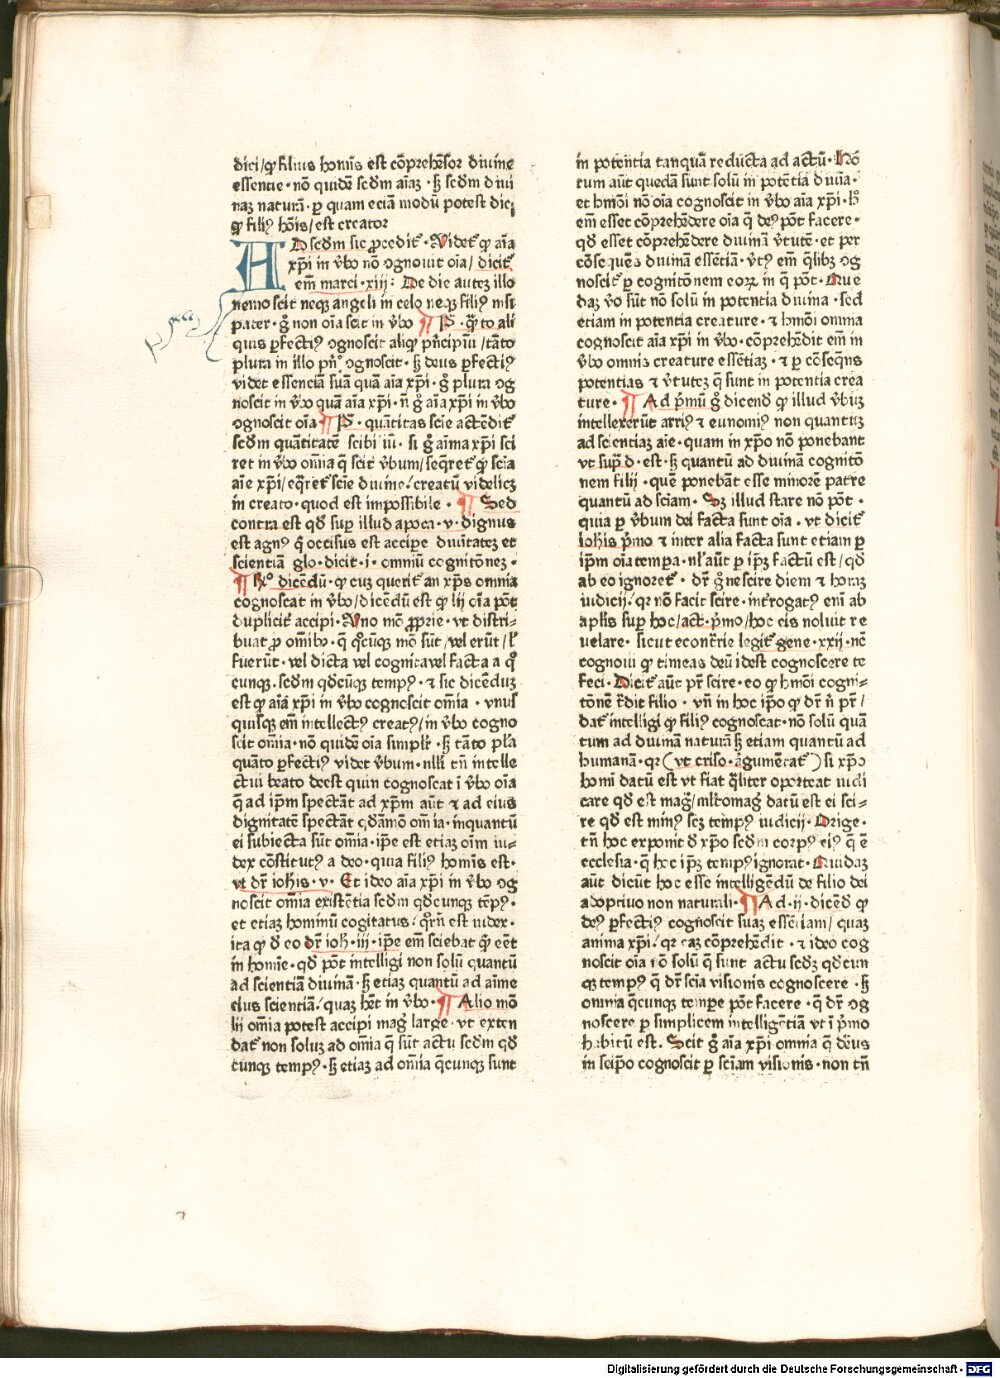 dici/ꝙ filius homīs est cōprehēsor diuine
essentie · nō quidē scd̄m aīaꝫ · ꝫ scd̄m diui
naꝫ naturā · ꝑ quam eciā modū potest dici
ꝙ filiꝰ hōīs/est creator
AD scd̄m sic ꝓcedit᷑ · Videt᷑ ꝙ aīa
xp̄i in v̄bo nō ꝯgnouit oīa/dicit᷑
em̄ marci · xiij : De die autez illo
nemo scit neqꝫ angeli in celo neqꝫ filiꝰ nisi
pater · gͦ non oīa scit in v̄bo ¶ P̄ · qͣto ali
quis ꝑfectiꝰ ꝯgnoscit aliqḋ pͥncipiū/tāto
plura in illo pͥnͦ ꝯgnoscit · ꝫ deus ꝑfectiꝰ
videt essenciā suā quā aīa xp̄i · gͦ plura ꝯg
noscit in v̄bo quā aīa xp̄i · n̄ gͦ aīa xp̄i in v̄bo
ꝯgnoscit oīa ¶ P̄ · quātitas scīe actēdit᷑
scd̄m quātitatē scibiliū · si gͦ aīma xp̄i sci
ret in v̄bo om̄ia q̄ scit v̄bum/seq̄ret᷑ ꝙ scīa
aīe xp̄i/eq̄ret᷑ scīe diuine/creatū videlicꝫ
in creato · quod est impossibile · ¶ Sed
contra est qḋ suꝑ illud apoca · v · dignus
est agnꝰ q̄ occisus est accipe diuītatez et
scientiā glo · dicit · i · omniū cognitōnez ·
¶ Rͦ dicēdū · ꝙ cuꝫ querit᷑ an xp̄s omnia
cognoscat in v̄bo/dicēdū est ꝙ lij oīa pōt
duplicit᷑ accipi · Vno mō ꝓprie · vt distri-
buat᷑ ꝓ om̄ibꝫ · q̄ qͦcūqꝫ mō sūt/vel erūt/ł
fuerūt · vel dicta vel cognita vel facta a qͦ
cunqꝫ · scd̄m qḋcūqꝫ tempꝰ · ⁊ sic dicēduꝫ
est ꝙ aīa xp̄i in v̄bo cognoscit om̄ia · vnus
quisqꝫ em̄ intellectꝰ creatꝰ/in v̄bo cogno
scit om̄ia · nō quidē oīa simplr̄ · ꝫ tāto pła
quāto ꝑfectiꝰ videt v̄bum · nlłi tn̄ intelle
ctui beato deest quin cognoscat ī v̄bo oīa
q̄ ad ip̄m spectāt ad xp̄m aūt ⁊ ad eius
dignitatē spectāt qd̄āmō om̄ia · inquantū
ei subiecta sūt om̄ia · ip̄e est etiaꝫ oīm iu-
dex cōstitutꝰ a deo · quia filiꝰ homīs est ·
vt dr̄ iohīs · v · Et ideo aīa xp̄i in v̄bo ꝯg
noscit om̄ia existētia scd̄m qḋcunqꝫ tēpꝰ ·
et etiaꝫ hominū cogitatus · qͦꝝ est iudex ·
ita ꝙ ḋ eo dr̄ ioh̄ · iij · ip̄e em̄ sciebat qḋ eēt
in homīe · qḋ pōt intelligi non solū quantū
ad scientiā diuinā · ꝫ etiaꝫ quantū ad aīme
eius scientiā/quaꝫ hēt in v̄bo · ¶ Alio mō
lij om̄ia potest accipi magͥ large · vt exten
dat᷑ non soluꝫ ad om̄ia q̄ sūt actu scd̄m qḋ
cunqꝫ tempꝰ · ꝫ etiaꝫ ad om̄ia q̄cunqꝫ sunt
in potētia tanquā reducta ad actū · Hōꝝ
rum aūt quedā sunt solū in potētia diuīa ·
et hm̄oi nō oīa cognoscit in v̄bo aīa xp̄i · hͦ
em̄ esset cōprehēdere oīa q̄ deꝰ pōt facere ·
qḋ esset cōprehēdere diuinā v̄tutē · et per
cōsequēs diuinā essētiā · v̄tꝰ em̄ q̄libꝫ ꝯg
noscit᷑ ꝑ cognitōnem eoꝝ in q̄ pōt · Que
daꝫ v̄o sūt nō solū in potētia diuina · sed
etiam in potentia creature · ⁊ hm̄oi omnia
cognoscit aīa xp̄i in v̄bo · cōprehēdit em̄ in
v̄bo omnis creature essētiaꝫ · ⁊ ꝑ cōseq̄ns
potentias ⁊ v̄tutez q̄ sunt in potentia crea
ture · ¶ Ad pͥmū gͦ dicend̄ ꝙ illud v̄biꝫ
intellexerūt arriꝰ ⁊ eunomiꝰ non quantuꝫ
ad scientiaꝫ aīe · quam in xp̄o nō ponebant
vt supͣ ḋ · est · ꝫ quantū ad diuinā cognitō
nem filij · quē ponebāt esse minorē patre
quantū ad sciam · Sꝫ illud stare nō pōt ·
quia ꝑ v̄bum dei facta sunt oīa · vt dicit᷑
iohīs pͥmo ⁊ inter alia facta sunt etiam ꝑ
ip̄m oīa tempa · nł aūt ꝑ ip̄ꝫ factū est/qḋ
ab eo ignoret᷑ · dr̄ gͦ nescire diem ⁊ horaꝫ
iudicij/qꝛ nō facit scire · int̄rogatꝰ eni ab
apłis suꝑ hoc/act · pͥmo/hoc eis noluit re
uelare · sicut econtrͣrie legit᷑ gene · xxij · nc̄
cognoui ꝙ timeas deū idest cognoscere te
feci · Dicit᷑ aūt pr̄ scire · eo ꝙ hm̄oi cogni-
tōnē t̄dit filio · vn̄ in hoc ip̄o ꝙ dr̄ n̄ pr̄/
dat᷑ intelligi ꝙ filiꝰ cognoscat · nō solū quā
tum ad diuinā naturā ꝫ etiam quantū ad
humanā · qꝛ (vt criso · argumētat᷑) si xp̄o
homī datū est vt fiat q̄liter oporteat iudi
care qḋ est magͥ/młtomagͥ datū est ei sci-
re qḋ est minꝰ scꝫ tempꝰ iudicij · Orige ·
tn̄ hoc exponit ḋ xp̄o scd̄m corpꝰ eiꝰ q̄ ē
ecclesia · q̄ hoc ip̄ꝫ tempꝰ ignorat · Quidaꝫ
aūt dicūt hoc esse intelligēdū de filio dei
adoptiuo non naturali · ¶ Ad · ij · dicēd̄ ꝙ
deꝰ ꝑfectiꝰ cognoscit suaꝫ essētiam/quaꝫ
anima xp̄i/qꝛ eaꝫ cōprehēdit · ⁊ ideo cog
noscit oīa nō solū q̄ sunt actu scd̄ꝫ qḋcun
qꝫ tempꝰ q̄ dr̄ scīa visionis cognoscere · ꝫ
omnia q̄cunqꝫ tempe pōt facere · q̄ dr̄ ꝯg
noscere ꝑ simplicem intelligētiā vt ī pͥmo
habitū est · Scit gͦ aīa xp̄i omnia q̄ deus
in seip̄o cognoscit ꝑ scīam visionis · non tn̄
Digitalisierung gefördert durch die Deutsche Forschungsgemeinschaft - DFG